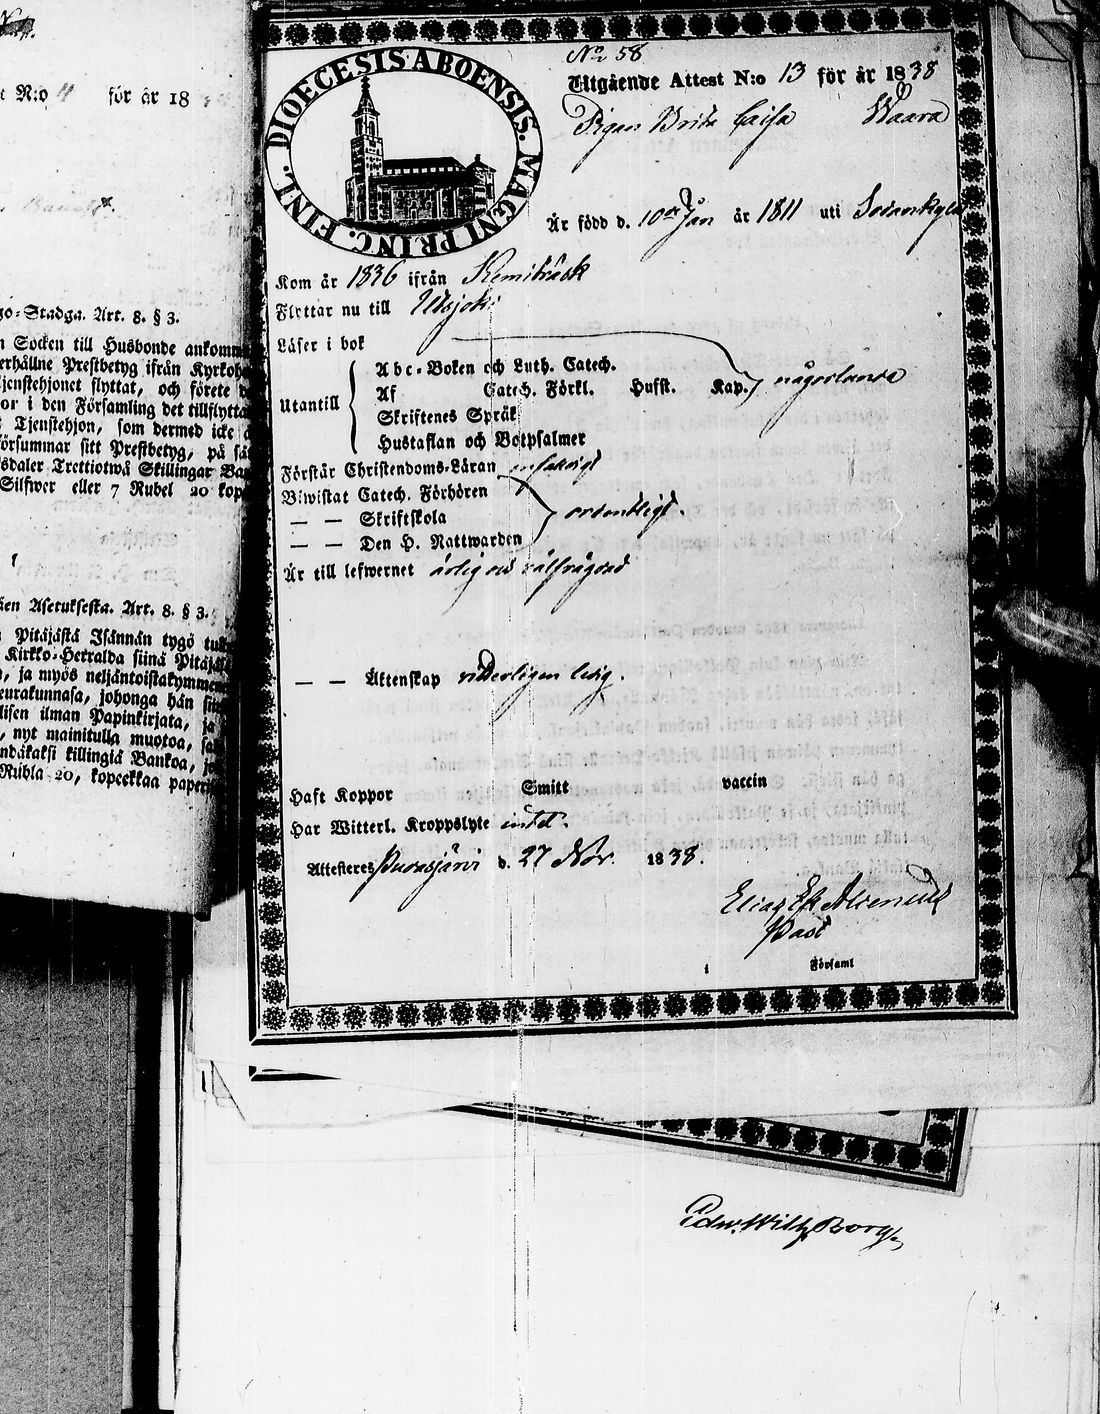 t N:o 4 för år 18
go-Stadga. Art. 8. § 3.
n Socken till Husbonde ankomm
erhållne Prestbetyg ifrån Kyrkoh
jenstehjonet flyttat, och förete d
or i den Församling det tillflytta
t Tjenstehjon, som dermed icke
försummar sitt Prestbetyg, på så
sdaler Trettiotwå Skillingar Ban
Silfwer eller 7 Rubel 20 kop
äen Asetuksesta. Art. 8. § 3.
Pitäjästä Isännän tygö tul
Kirkko-Herralda siinä Pitäjä
, ja myös neljäntoistakymmen
eurakunnasa, johonga hän sii
lisen ilman Papinkirjata, ja
, nyt mainitulla muotoa, sa
ndäkaksi killingiä Bankoa,
Rubla 20, kopeekkaa paperi
DIOECESIS ABOENSIS. MAGNI PRINC. FINL.
No 58
Utgående Attest N:o 13 för år 1838
Pigan Brita Caisa Waara
Är född d. 10de Jan år 1811 uti Sodankylä
Kom år 1836 ifrån Kemiträsk
Flyttar nu till Utsjoki
Läser i bok
Utantill
Abc-Boken och Luth. Catech.
Af Catech. Förkl. Husst. Kap. någorlunda
Skriftenes Språk
Hustaflan och Botpsalmer
Förstår Christendoms-Läran enfaldigt
Biwistat Catech. Förhören
— — Skriftskola ordentligt.
— — Den H. Nattwarden
Är till lefwernet ärlig och välfrägdad
— — Äktenskap veterligen ledig.
Haft Koppor Smitt vaccin
Har Witterl. Kroppslyte intet.
Attesteres Pudasjärvi d. 27 Nov. 1838.
Elias Past
i Församl
Edw. Wilh. Borg